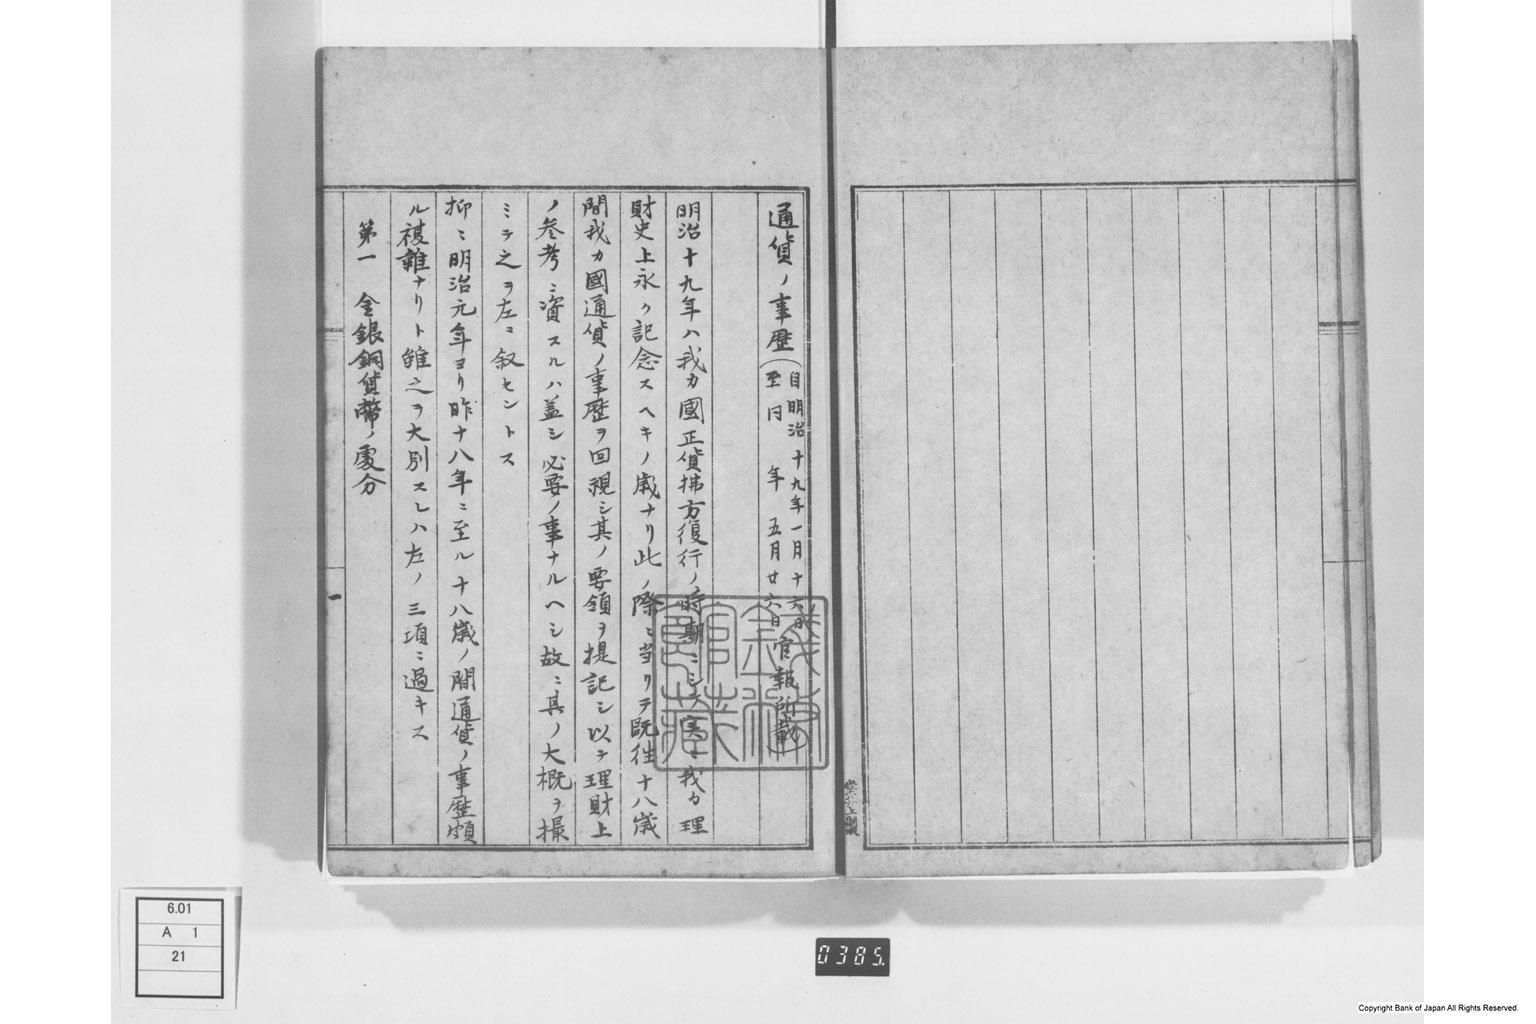 通貨ノ事歴(自明治十九年一月十六日至同年五月廿六日)官報所載
明治十九年ハ我カ國正貨拂方復行ノ時期ニシテ実ニ我カ理
財史上永ク記念スヘキノ歳ナリ此ノ際ニ当リテ既往十八歳
間我カ國通貨ノ事歴ヲ回視シ其ノ要領ヲ提記シ以テ理財上
ノ参考ニ資スルハ蓋シ必要ノ事ナルヘシ故ニ其ノ大概ヲ撮
ミテ之ヲ左ニ叙セントス
抑ミ明治元年ヨリ昨十八年ニ至ル十八歳ノ間通貨ノ事歴頗
ル複雑ナリト雖之ヲ大別スレハ左ノ三項ニ過キス
第一 金銀銅貨幣ノ處分
6.01
A 1
21
0385
Copyright Bank of Japan All Rights Reserved.